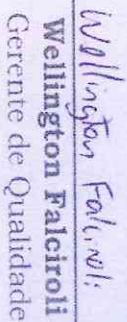 Wellington Falciroli
Wellington Falciroli
Gerente de Qualidade